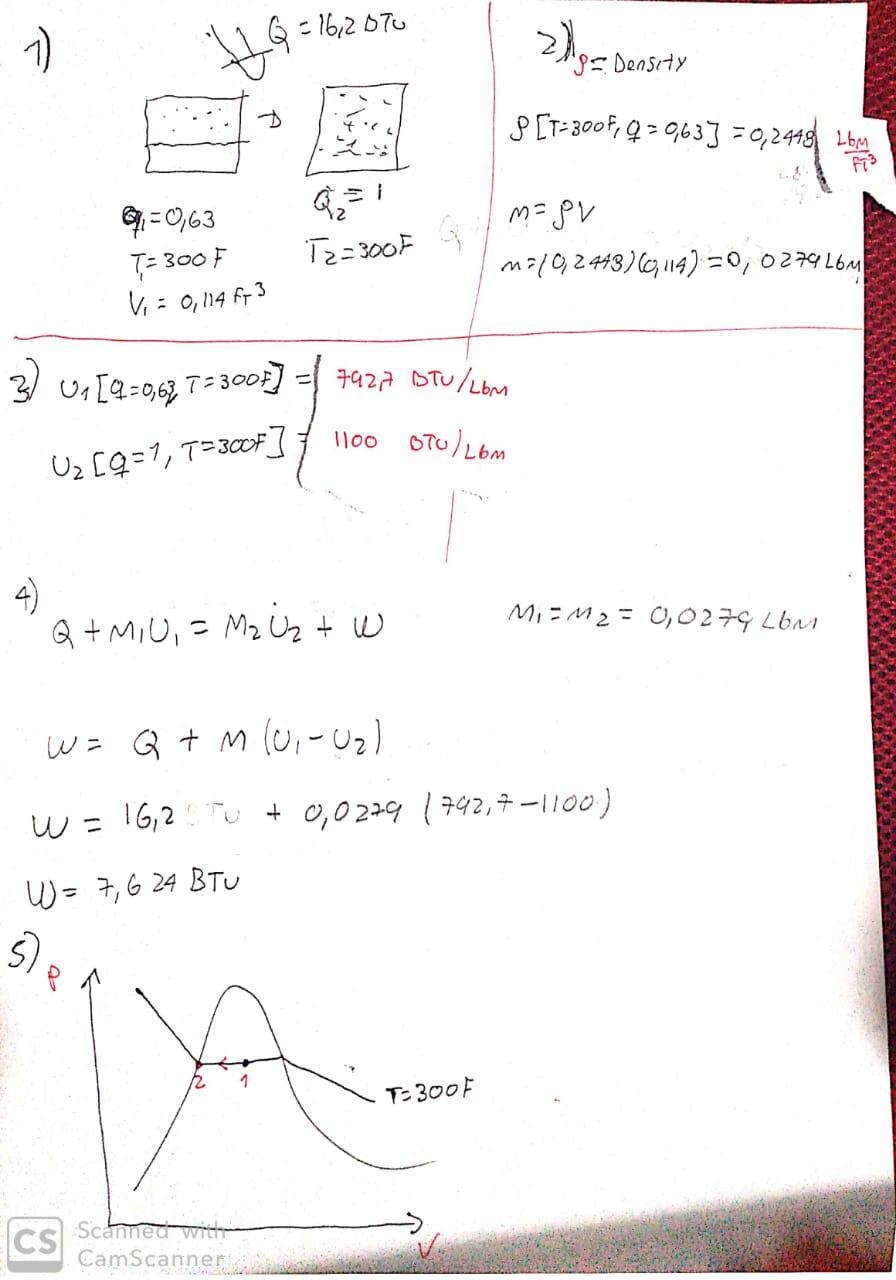 1)
Q = 16,2 BTU
q₁ = 0,63
T₁ = 300 F
V₁ = 0,114 FT³
Q₂ = 1
T₂ = 300F
2)
ρ = Density
ρ [T=300F, q = 0,63] = 0,2448 Lbm/FT³
m = ρV
m = (0,2448)(0,114) = 0,0279 Lbm
3) U₁ [q=0,63, T=300F] = 792,7 BTU/Lbm
U₂ [q=1, T=300F] = 1100 BTU/Lbm
4)
Q + M₁U₁ = M₂U₂ + W
M₁ = M₂ = 0,0279 Lbm
W = Q + M (U₁ - U₂)
W = 16,2 BTU + 0,0279 (792,7 - 1100)
W = 7,624 BTU
5)
P
2 1
T=300F
V
CS Scanned with
CamScanner